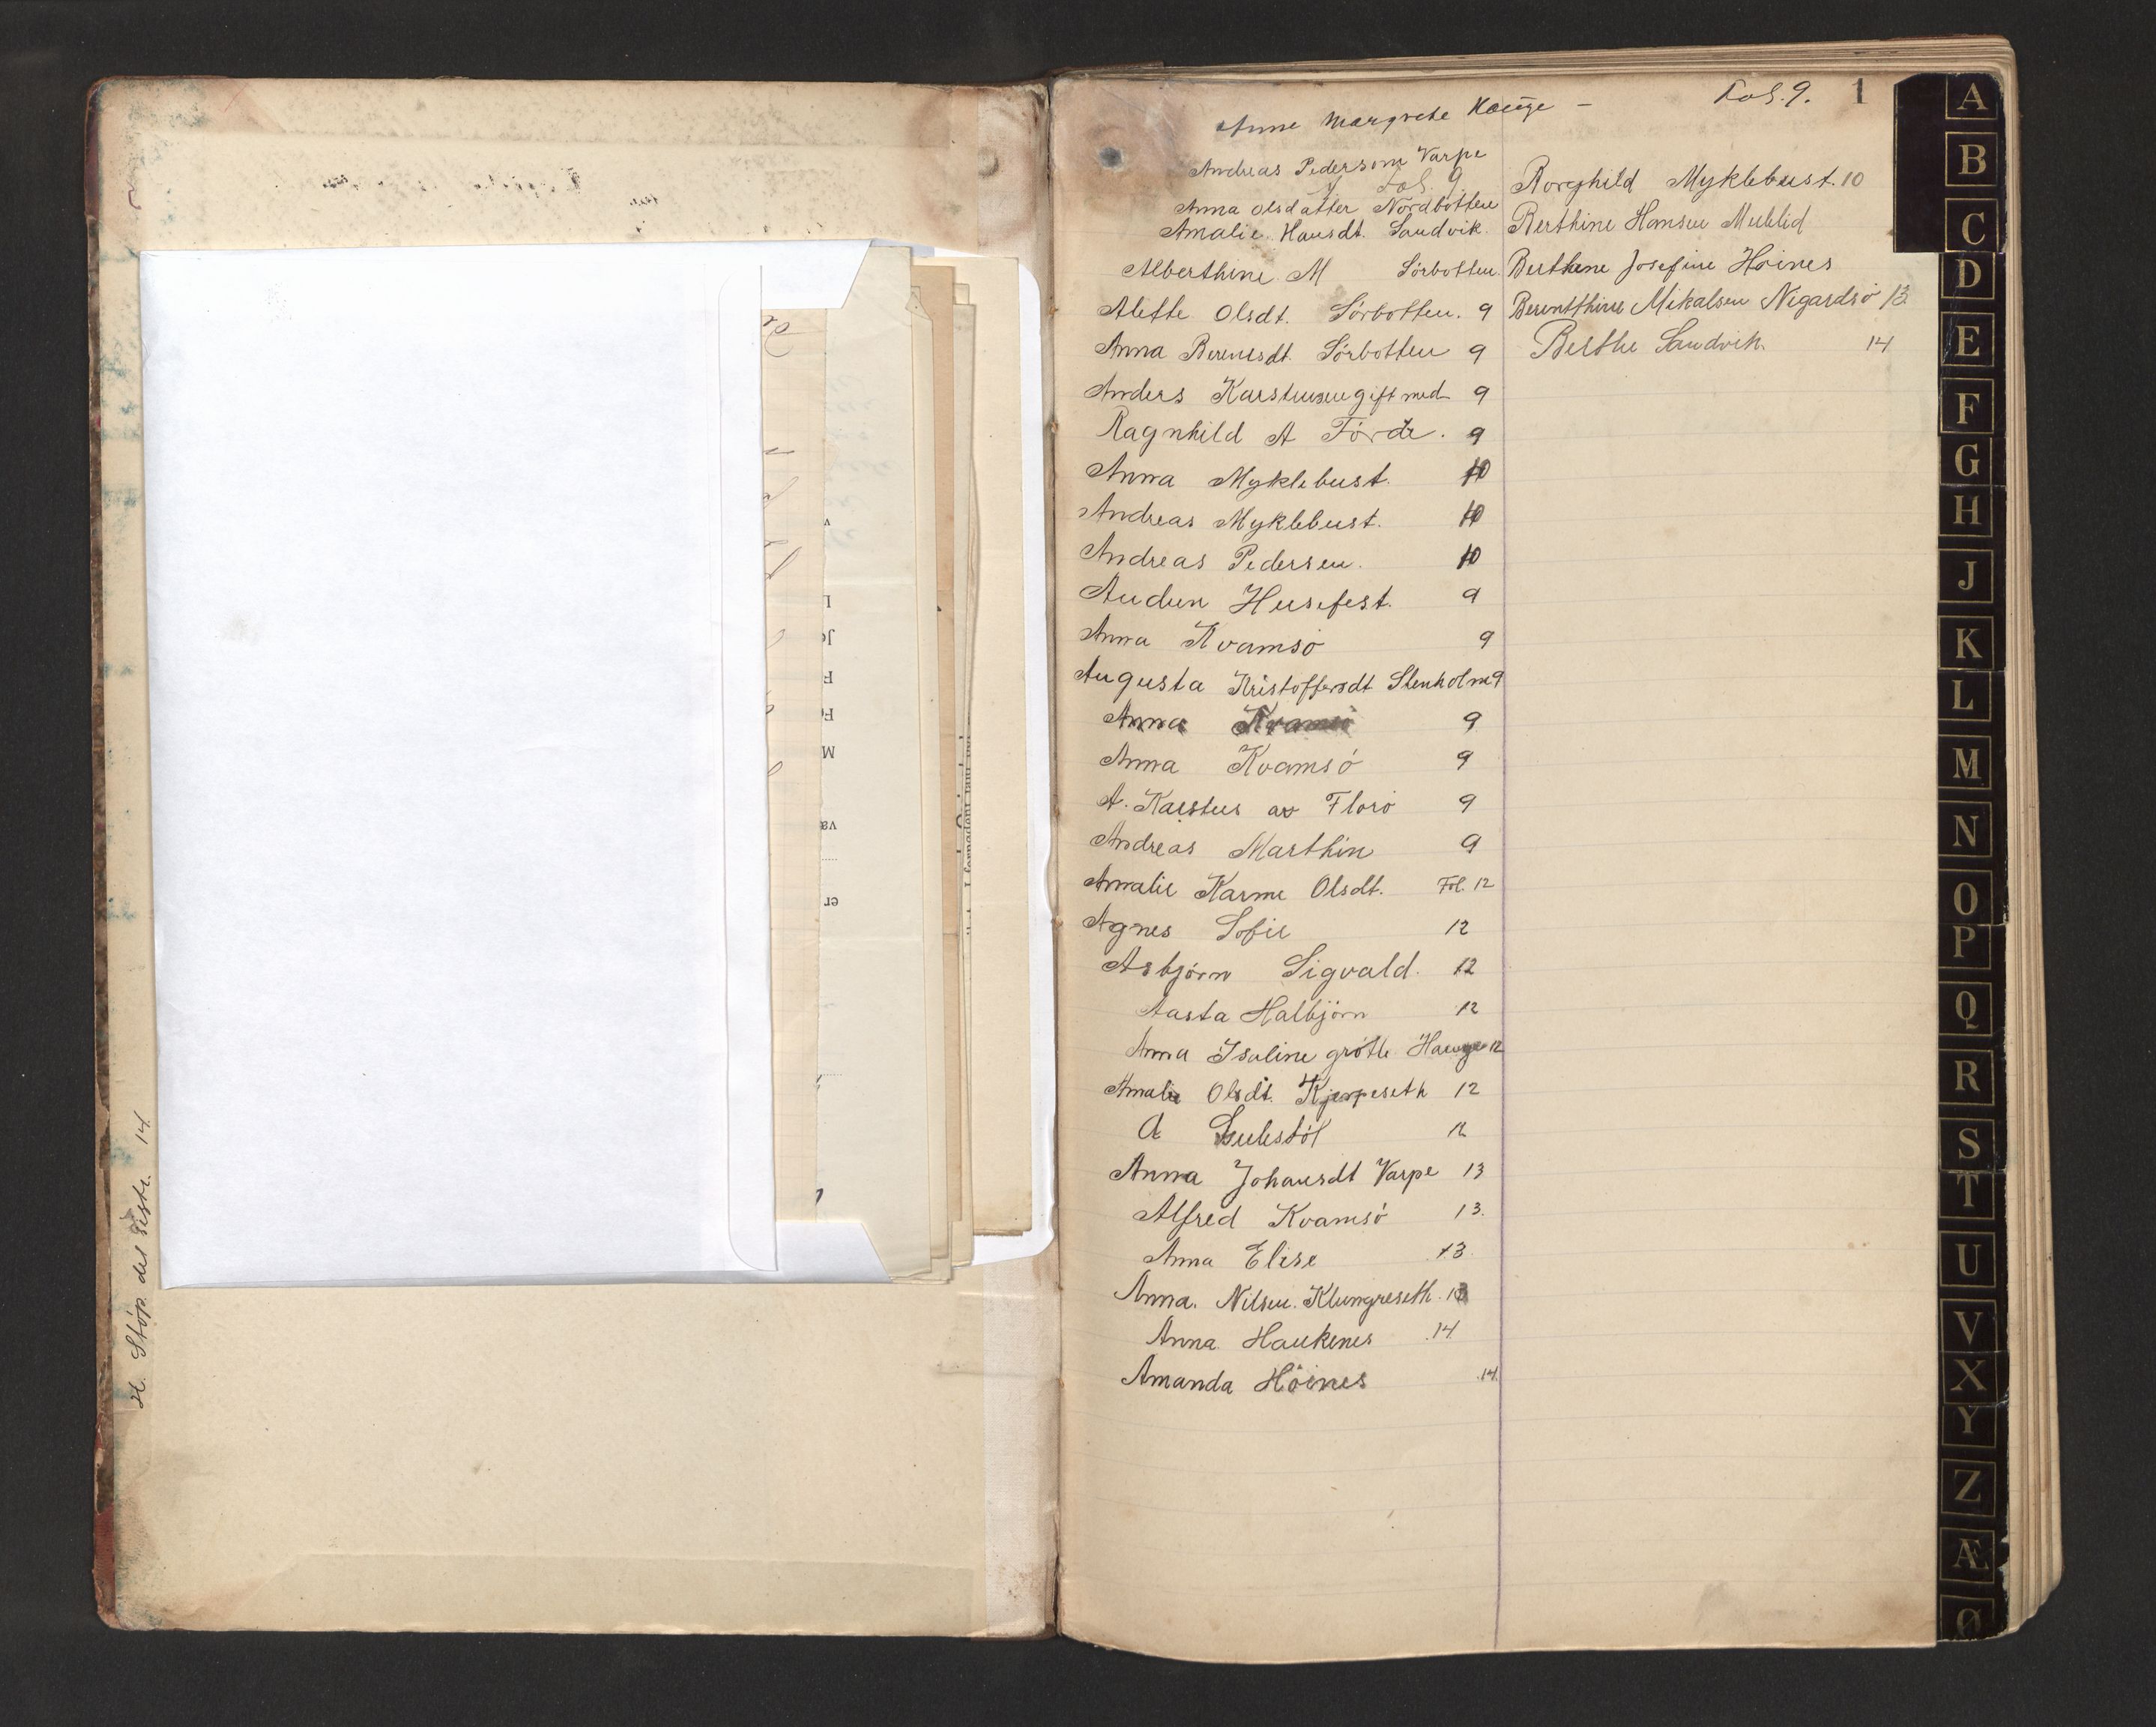 H. Støp. del Restr. 14
Anne Margrete Hauge — Fol. 9. 1
Andreas Pedersom Varpe
Fol. 9
Anna Olsdatter Nordbotten
Amalie Hansdt. Sandvik.
Alberthine M Sørbotten
Alette Olsdt. Sørbotten. 9
Anna Berentsdt. Sørbotten 9
Anders Karstensen gift med 9
Ragnhild A Førde. 9
Anna Myklebust. 10
Andreas Myklebust. 10
Andreas Pedersen. 10
Audun Husefest. 9
Anna Kvamsø 9
Augusta Kristoffersdt Stenholm 9
Anna Kvamsø 9
Anna Kvamsø 9
A. Karstens av Florø 9
Andreas Marthin 9
Amalie Karine Olsdt. Fol. 12
Agnes Sofie 12
Asbjørn Sigvald. 12
Aasta Halbjørn 12
Anna Isaline grøtle Hauge 12
Amalie Olsdt. Kjerpeseth 12
A 12
Anna Johansdt Varpe 13
Alfred Kvamsø 13.
Anna Elise 13.
Anna. Nilsen. Klungreseth. 13
Anna Haukenes 14
Amanda Høines 14.
Borghild Myklebust. 10
Berthine Hansen Myklid
Berthine Josefine Høines
Bernthine Mikalsen Nigardsø 13
Berthe Sandvik. 14
A
B
C
D
E
F
G
H
J
K
L
M
N
O
P
Q
R
S
T
U
V
X
Y
Z
Æ
Ø